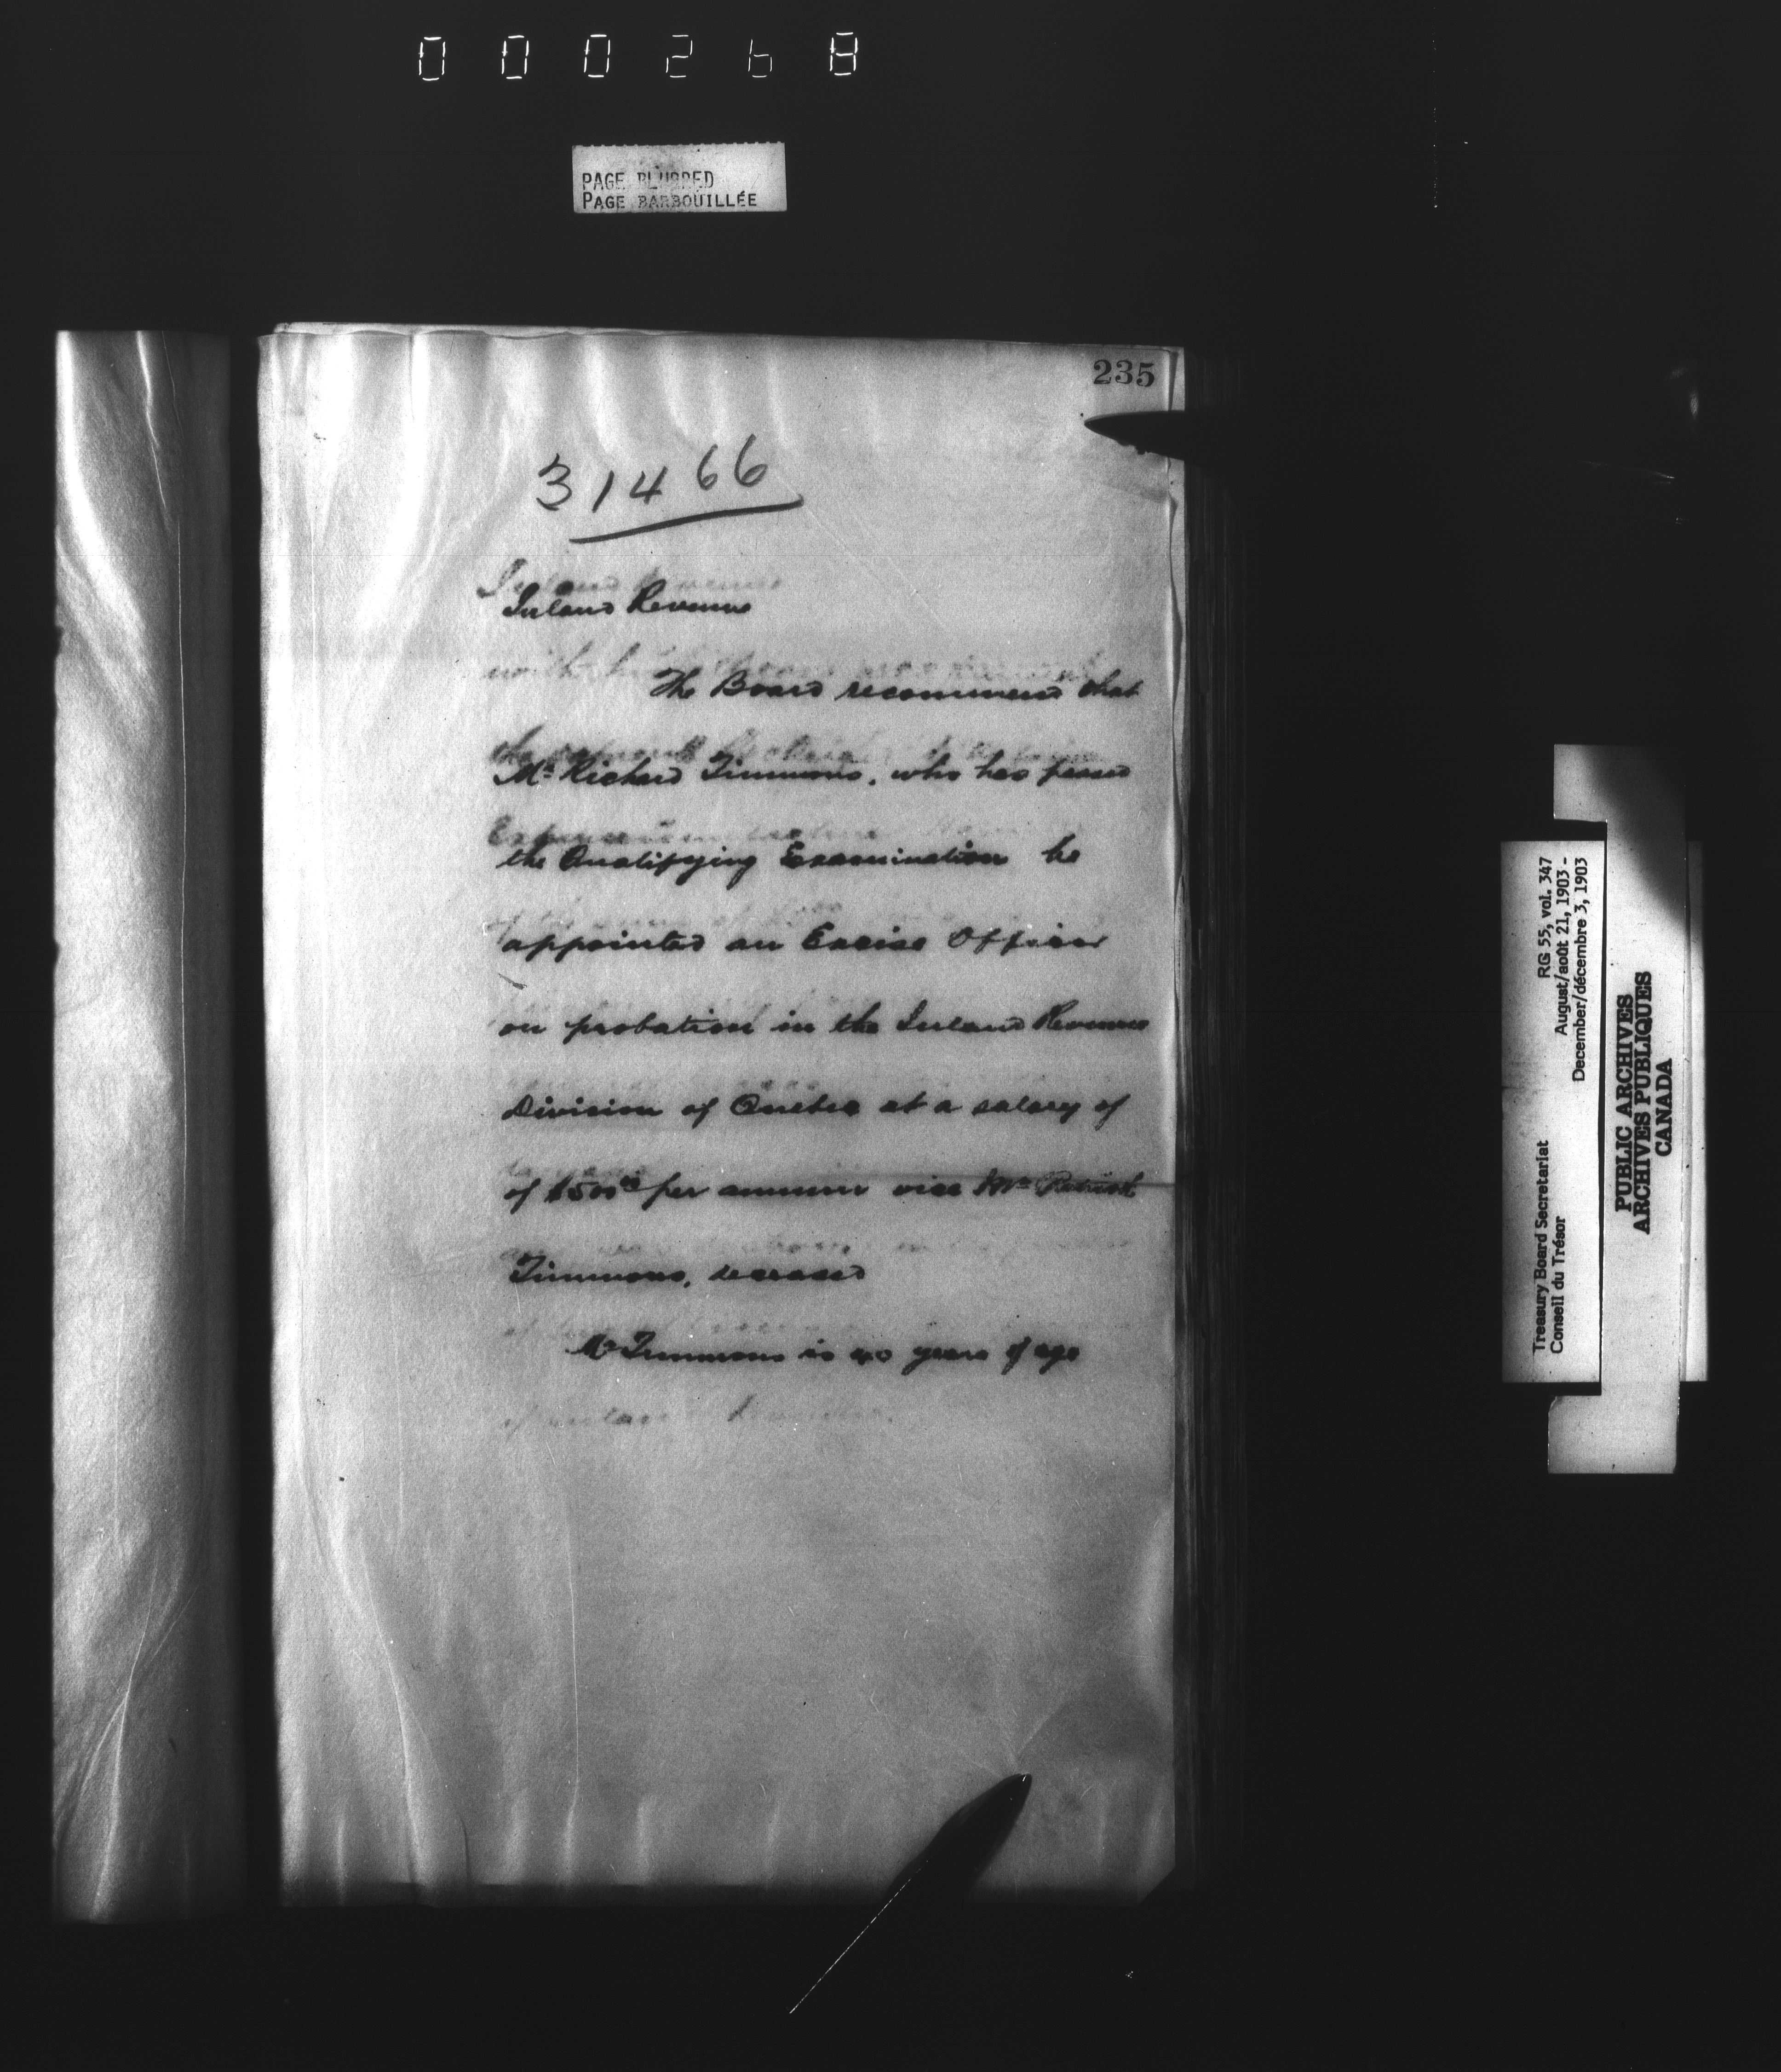 000268
PAGE BLURRED
PAGE BARBOUILLÉE
235
31466
Inland Revenue
The Board recommend that
Mr Richard Timmons, who has passed
the Qualifying Examination be
appointed an Excise Officer
on probation in the Inland Revenue
Division of Quebec at a salary of
of $500.00 per annum vice Mr Patrick
Timmons, deceased
Mr Timmons is 40 years of age
Treasury Board Secretariat RG 55, vol. 347
Conseil du Trésor August/août 21, 1903 -
December/décembre 3, 1903
PUBLIC ARCHIVES
ARCHIVES PUBLIQUES
CANADA